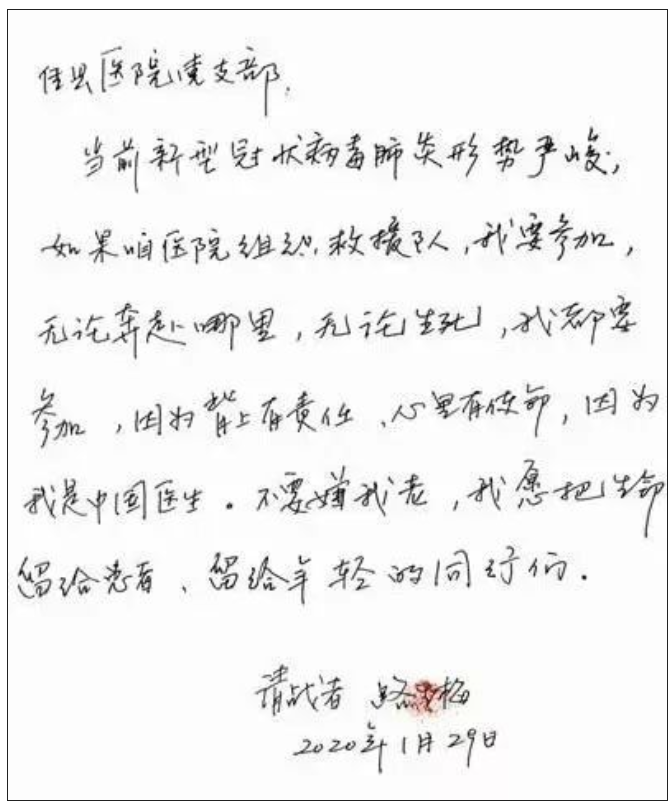 佳县医院党支部,
当前新型冠状病毒肺炎形势严峻,
如果咱医院组织救援队,我要参加,
无论奔赴哪里,无论生死,我都要
参加,因为背上有责任、心里有使命,因为
我是中国医生。不要嫌我老,我愿把生命
留给患者、留给年轻的同行们.
请战者 路 梅
2020年1月29日